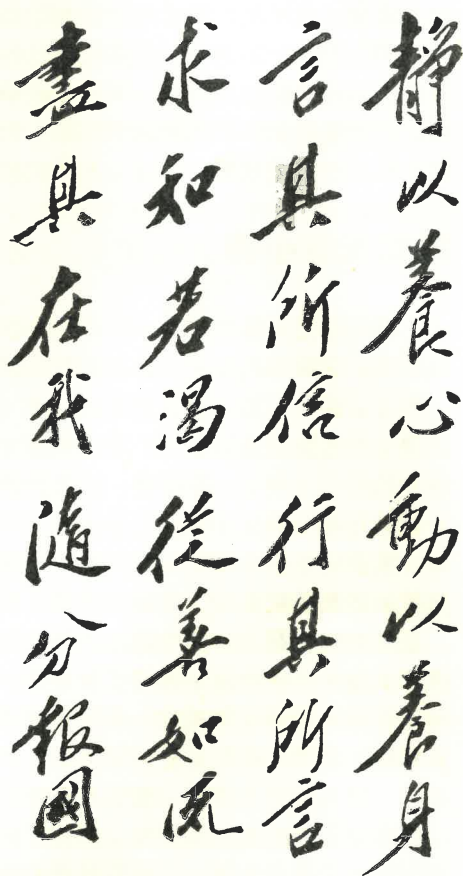 靜以養心動以養身
言其所信行其所言
求知若渴從善如流
盡其在我隨分報國